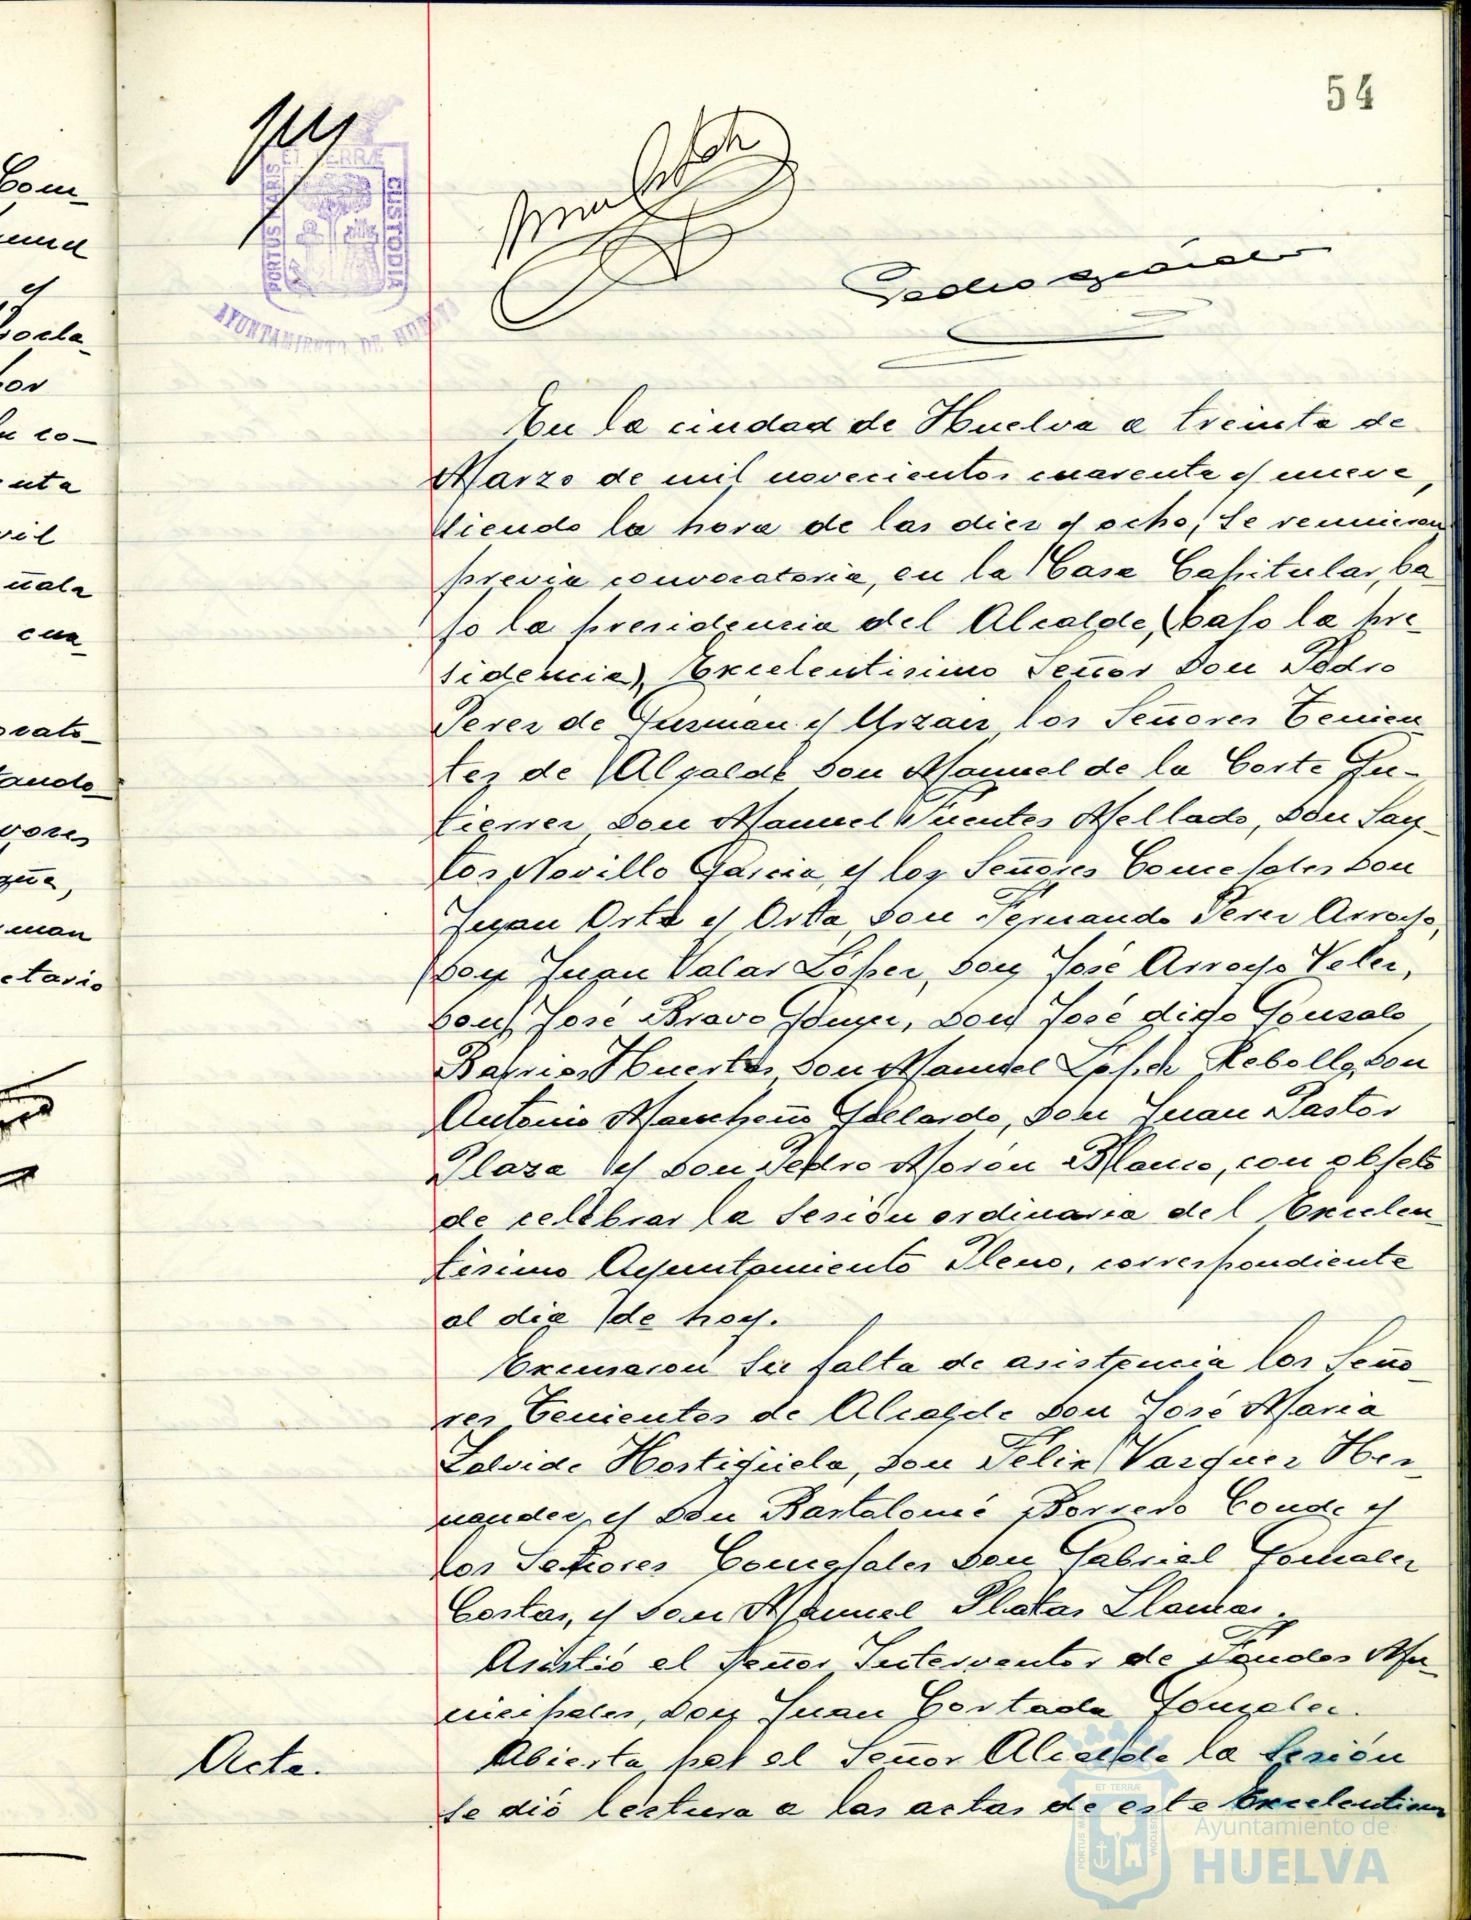 54
ET TERRÆ
PORTUS MARIS
CUSTODIA
AYUNTAMIENTO DE HUELVA
En la ciudad de Huelva a treinta de
Marzo de mil novecientos cuarenta y nueve,
siendo la hora de las diez y ocho, se reunieron
previa convocatoria, en la Casa Capitular, ba-
jo la presidencia del Alcalde, (bajo la pre-
sidencia), Excelentisimo Señor Don Pedro
Perez de Guzmán y Urzaiz, los Señores Tenien-
tes de Alcalde Don Manuel de la Corte Gu-
tierrez, Don Manuel Fuentes Mellado, Don San-
tos Novillo Garcia, y los Señores Concejales Don
Juan Orta y Orta, Don Fernando Perez Arroyo,
Don Juan Valar López, Don José Arroyo Velez,
Don José Bravo Gomez, Don José digo Gonzalo
Barrios Huertas, Don Manuel López Rebollo, Don
Antonio Mancheño Gallardo, Don Juan Pastor
Plaza y Don Pedro Morón Blanco, con objeto
de celebrar la Sesión ordinaria del Excelen-
tisimo Ayuntamiento Pleno, correspondiente
al dia de hoy.
Excusaron su falta de asistencia los Seño-
res Tenientes de Alcalde Don José Maria
Zalvide Hostigüela, Don Felix Vazquez Her-
nandez, y Don Bartolomé Borrero Conde y
los Señores Concejales Don Gabriel Gonzalez
Costas, y Don Manuel Platas Llamas.
Asistió el Señor Interventor de Fondos Mu-
nicipales, Don Juan Cortada Gonzalez.
Acta.
Abierta por el Señor Alcalde la Sesión
se dió lectura a las actas de este Excelentisimo
Ayuntamiento de
HUELVA